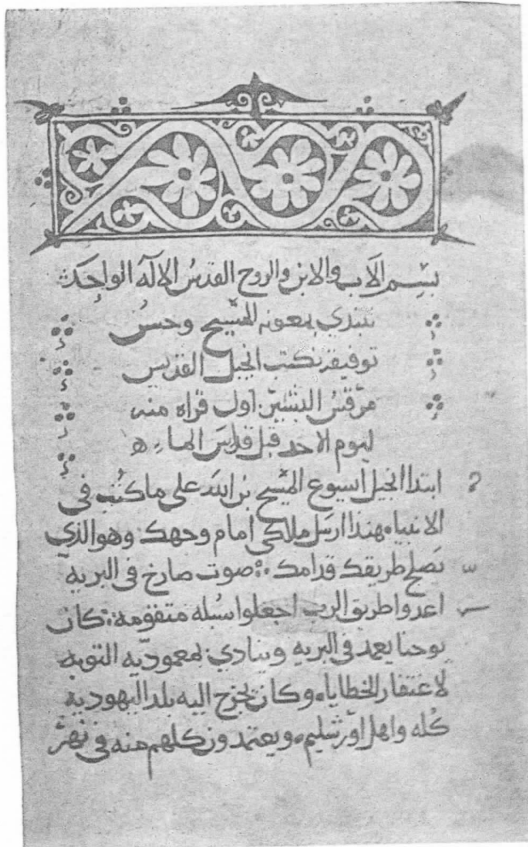 بسم الاب والابن والروح القدس الاله الواحد
نبتدي بمعونه المسيح وحسن
توفيقه نكتب انجيل القديس
مرقس البشير اول قراه منه
ليوم الاحد قبل قداس الما
ابتدا انجيل ايسوع المسيح بن الله على ماكتب في
الانبيا هنذا ارسل ملاكي امام وجهك وهو الذي
يصلح طريقك قدامك صوت صارخ في البريه
اعدوا طريق الرب اجعلوا سبله متقومة كان
يوحنا يعمد في البريه وينادي بمعموديه التوبه
لاغتفار الخطايا وكان يخرج اليه بلد اليهودية
كله واهل اورشليم ويعتمدون كلهم منه في نهر